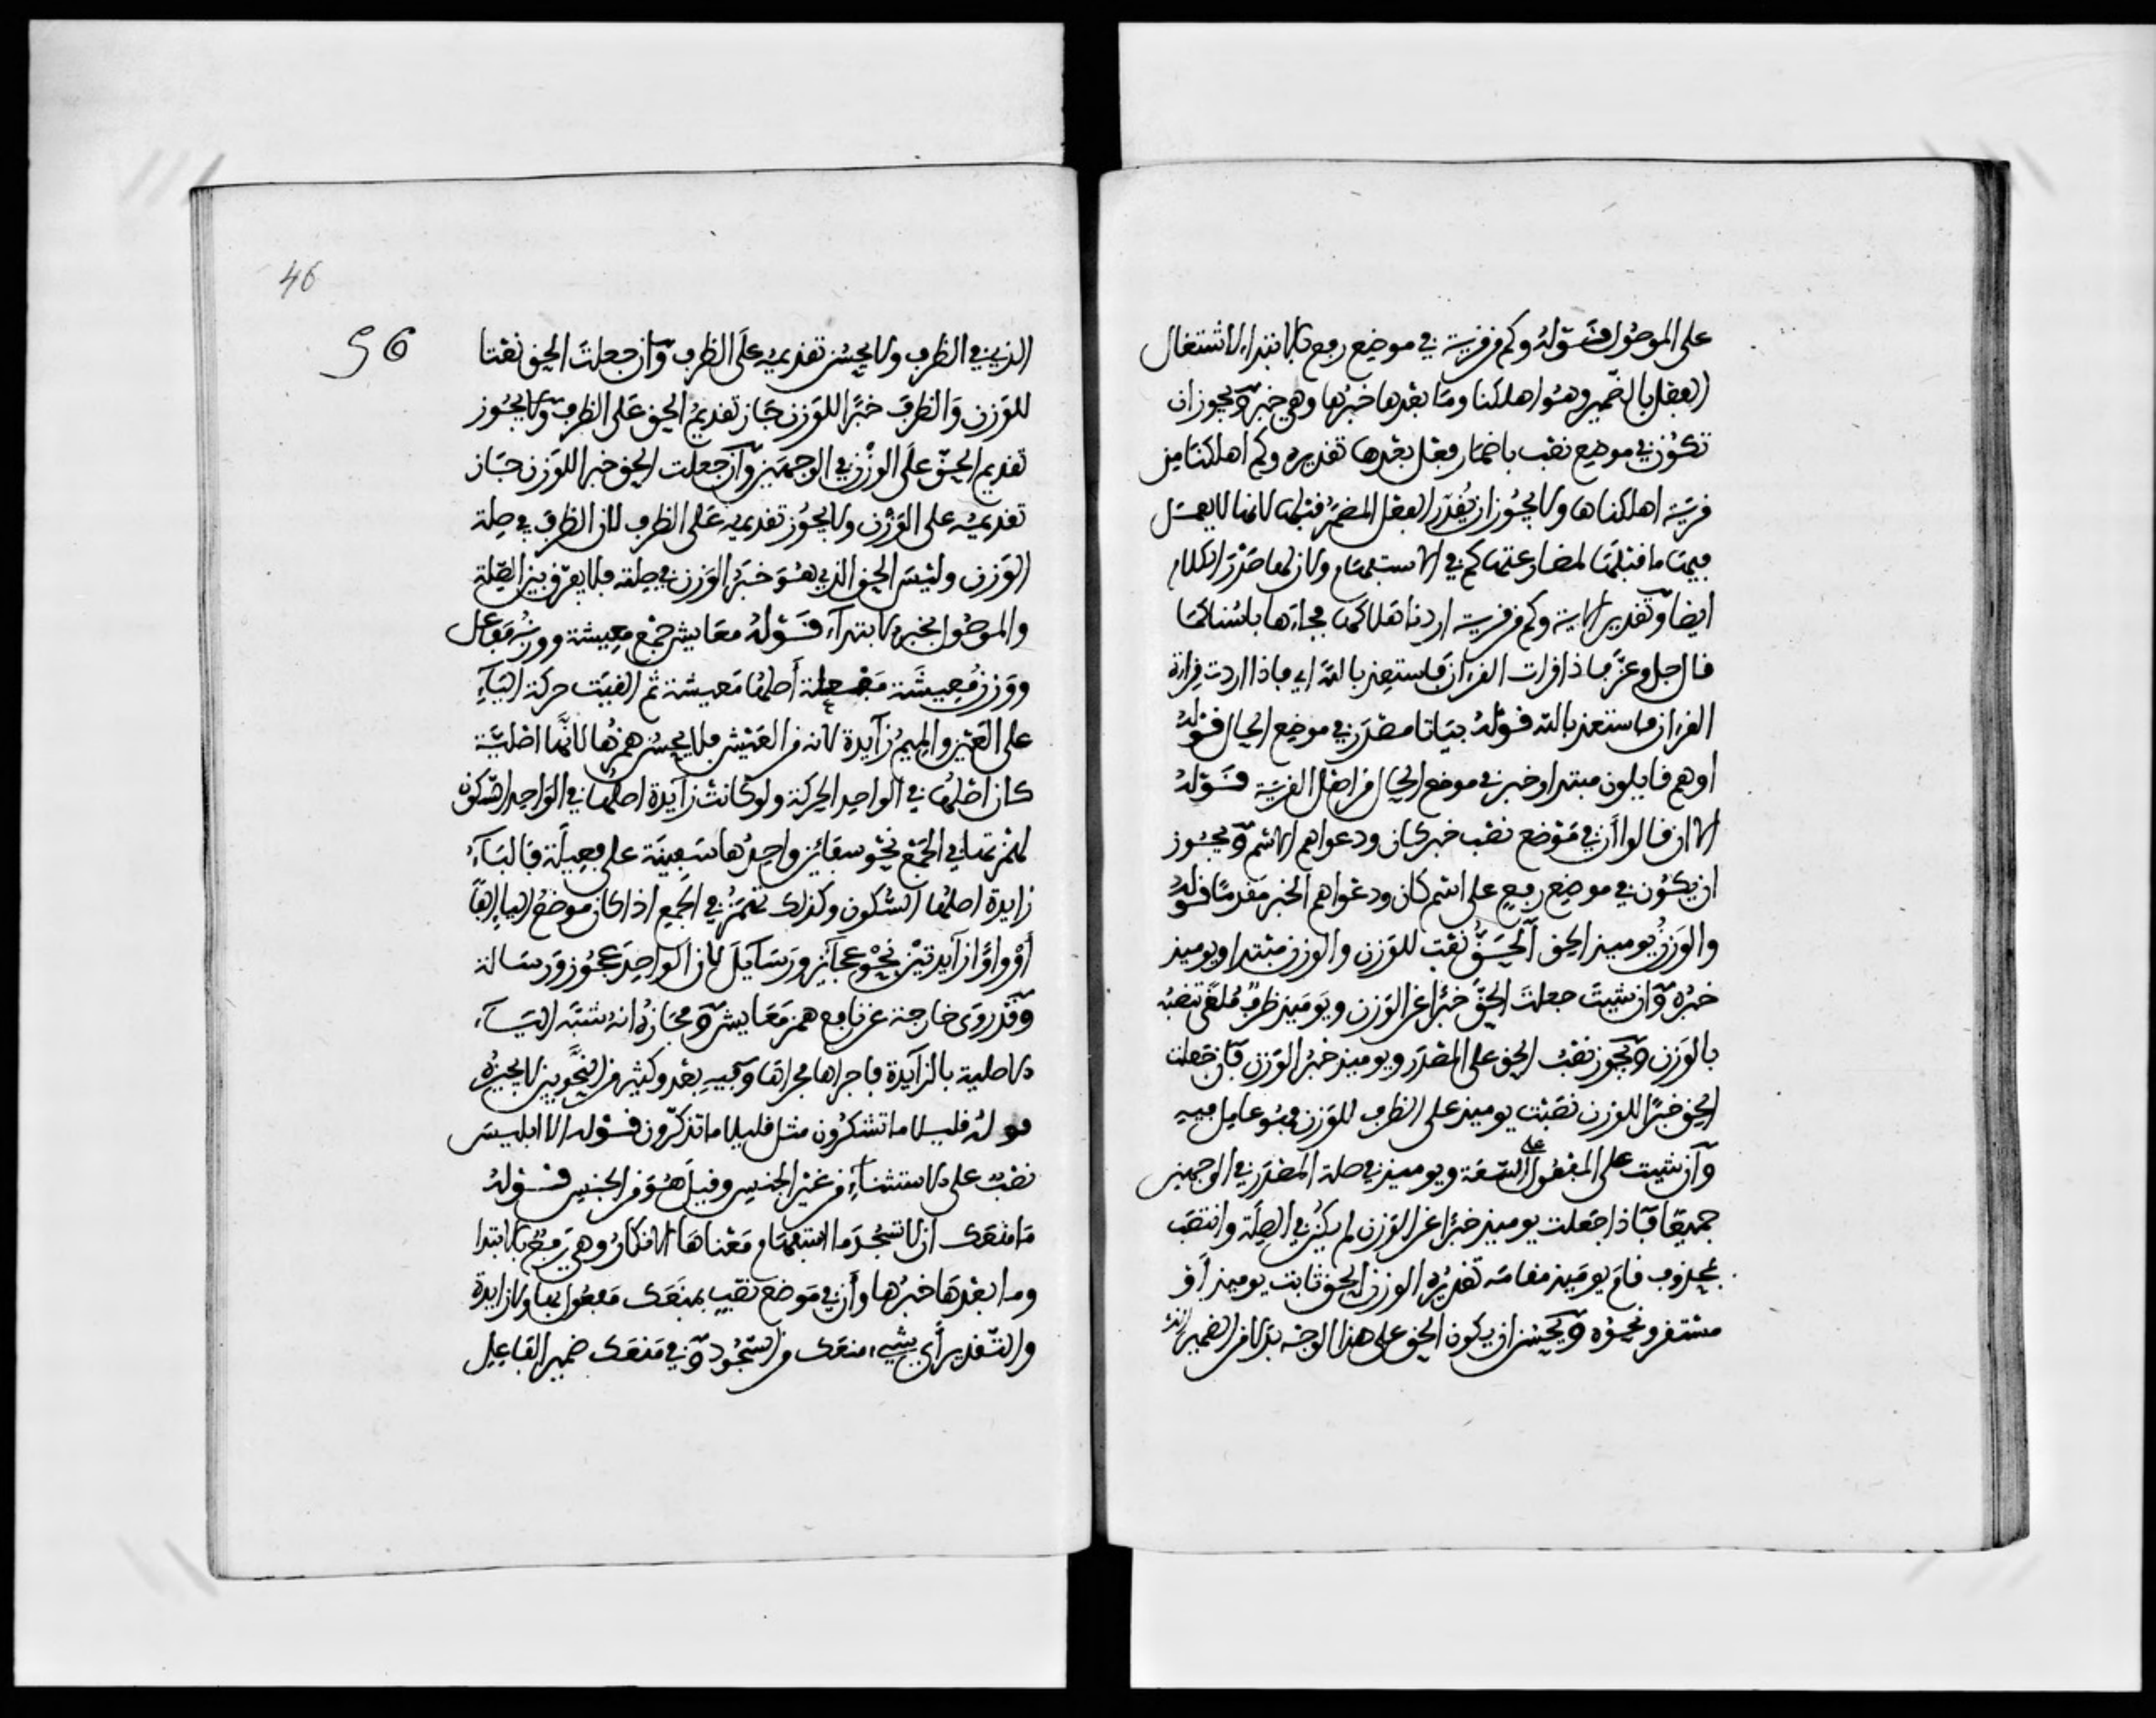 على الموصول قوله وكم من قرية في موضع رفع بالابتداء لاشتغال
الفعل بالضمير وهو اهلكنا وما بعدها خبرها وهي خبر ويجوز ان
تكون في موضع نصب باضمار فعل بعدها تقديره وكم اهلكنا من
قرية اهلكناها ولا يجوز ان يقدر الفعل المضمر قبلها لانها لا يعمل
فيها ما قبلها لمضارعتها كم في الاستفهام ولان لها صدر الكلام
ايضا وتقدير الاية وكم من قرية اردنا هلاكها فجاءها باسنا كما
قال جل وعز فاذا قرات القرءان فاستعذ بالله اي فاذا اردت قراءة
القرءان فاستعذ بالله قوله بياتا مصدر في موضع الحال قوله
او هم قايلون مبتدا وخبر في موضع الحال من اهل القرية قوله
الا ان قالوا أن في موضع نصب خبر كان ودعواهم الاسم ويجوز
ان يكون في موضع رفع على اسم كان ودعواهم الخبر مقدما قوله
والوزن يوميذ الحق الحق نعت للوزن والوزن مبتدا ويوميذ
خبره وان شيت جعلت الحق خبرا عن الوزن ويوميذ ظرف ملغى تنصبه
بالوزن ويجوز نصب الحق على المصدر ويوميذ خبر الوزن فان جعلت
الحق خبرا للوزن نصبت يوميذ على الظرف للوزن فهو عامل فيه
وان شيت على المفعول على السعة ويوميذ في صلة المصدر في الوجهين
جميعا فاذا جعلت يوميذ خبرا عن الوزن لم يكن في الصلة وانتصب
بمحذوف قام يوميذ مقامه تقديره الوزن الحق ثابت يوميذ أو
مستقر ونحوه ويحسن ان يكون الحق على هذا الوجه بدلا من الضمير الذي
46
56
الذي في الظرف ولا يحسن تقديمه على الظرف وان جعلت الحق نعتا
للوزن والظرف خبرا للوزن جاز تقديم الحق على الظرف ولا يجوز
تقديم الحق على الوزن في الوجهين وان جعلت الحق خبرا للوزن جاز
تقديمه على الوزن ولا يجوز تقديمه على الظرف لان الظرف في صلة
الوزن وليس الحق الذي هو خبر الوزن في صلته فلا يفرق بين الصلة
والموصول بخبر الابتداء قوله معايش جمع معيشة ووزنه مفاعل
ووزن معيشة مفعلة أصلها معيشة ثم القيت حركة الياء
على العين والميم زايدة لانه من العيش فلا يحسن همزها لانها اصلية
كان اصلها في الواحد الحركة ولو كانت زايدة اصلها في الواحد السكون
لهمزتها في الجمع نحو سفائن واحدها سفينة على فعيلة فالياء
زايدة اصلها السكون وكذلك تهمز في الجمع اذا كان موضع الياء الفا
أو واوا زايدتين نحو عجائز ورسايل لان الواحد عجوز ورسالة
وقد روى خارجة عن نافع همز معايش ومجازه انه شبه الياء
الاصلية بالزايدة فاجراها مجراها وفيه بعد وكثير من النحويين لا يجيزه
قوله قليلا ما تشكرون مثل قليلا ما تذكرون قوله الا ابليس
نصب على الاستثناء من غير الجنس وقيل هو من الجنس قوله
ما منعك ان لا تسجد ما استفهام معناها الانكار وهي رفع بالابتدا
وما بعدها خبرها وأن في موضع نصب بمنعك مفعول بها ولا زايدة
والتقدير أي شيء منعك من السجود وفي منعك ضمير الفاعل